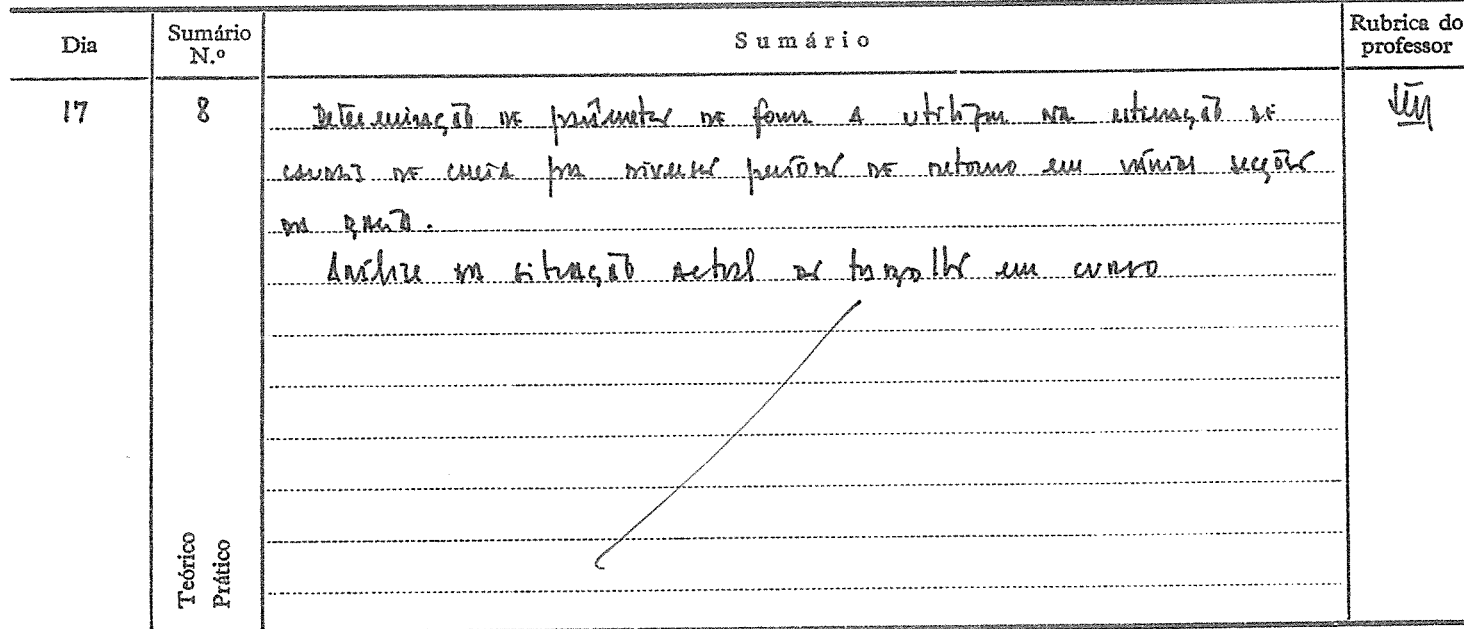 Dia
Sumário
N.º
Sumário
Rubrica do
professor
17
8
Determinação de parâmetros de forma a utilizar na estimação de
caudais de cheia para diversos períodos de retorno em várias secções
da
Análise da situação actual dos trabalhos em curso
Teórico
Prático